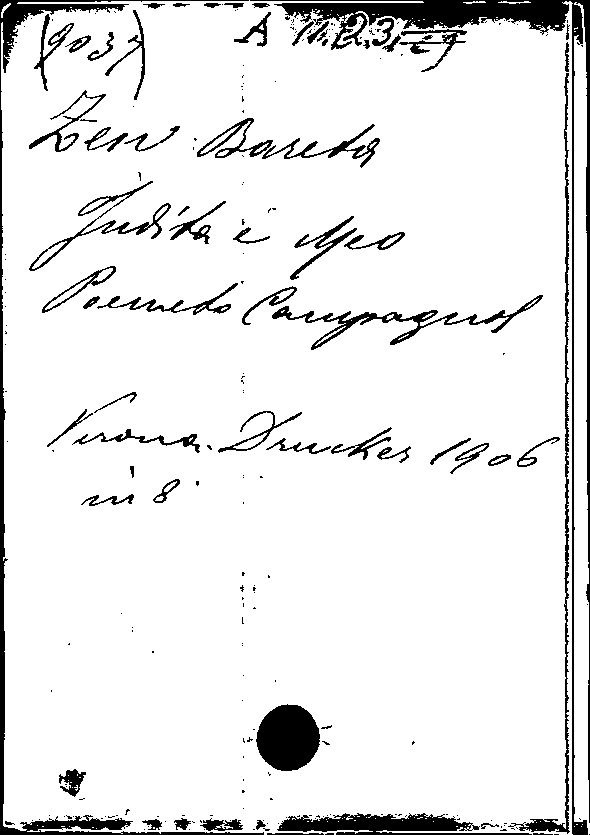 (9037) A 11.R.3.
Zen Bareta
Judita e Meo
Poemeto Campagnol
Verona. Drucker 1906
in 8°